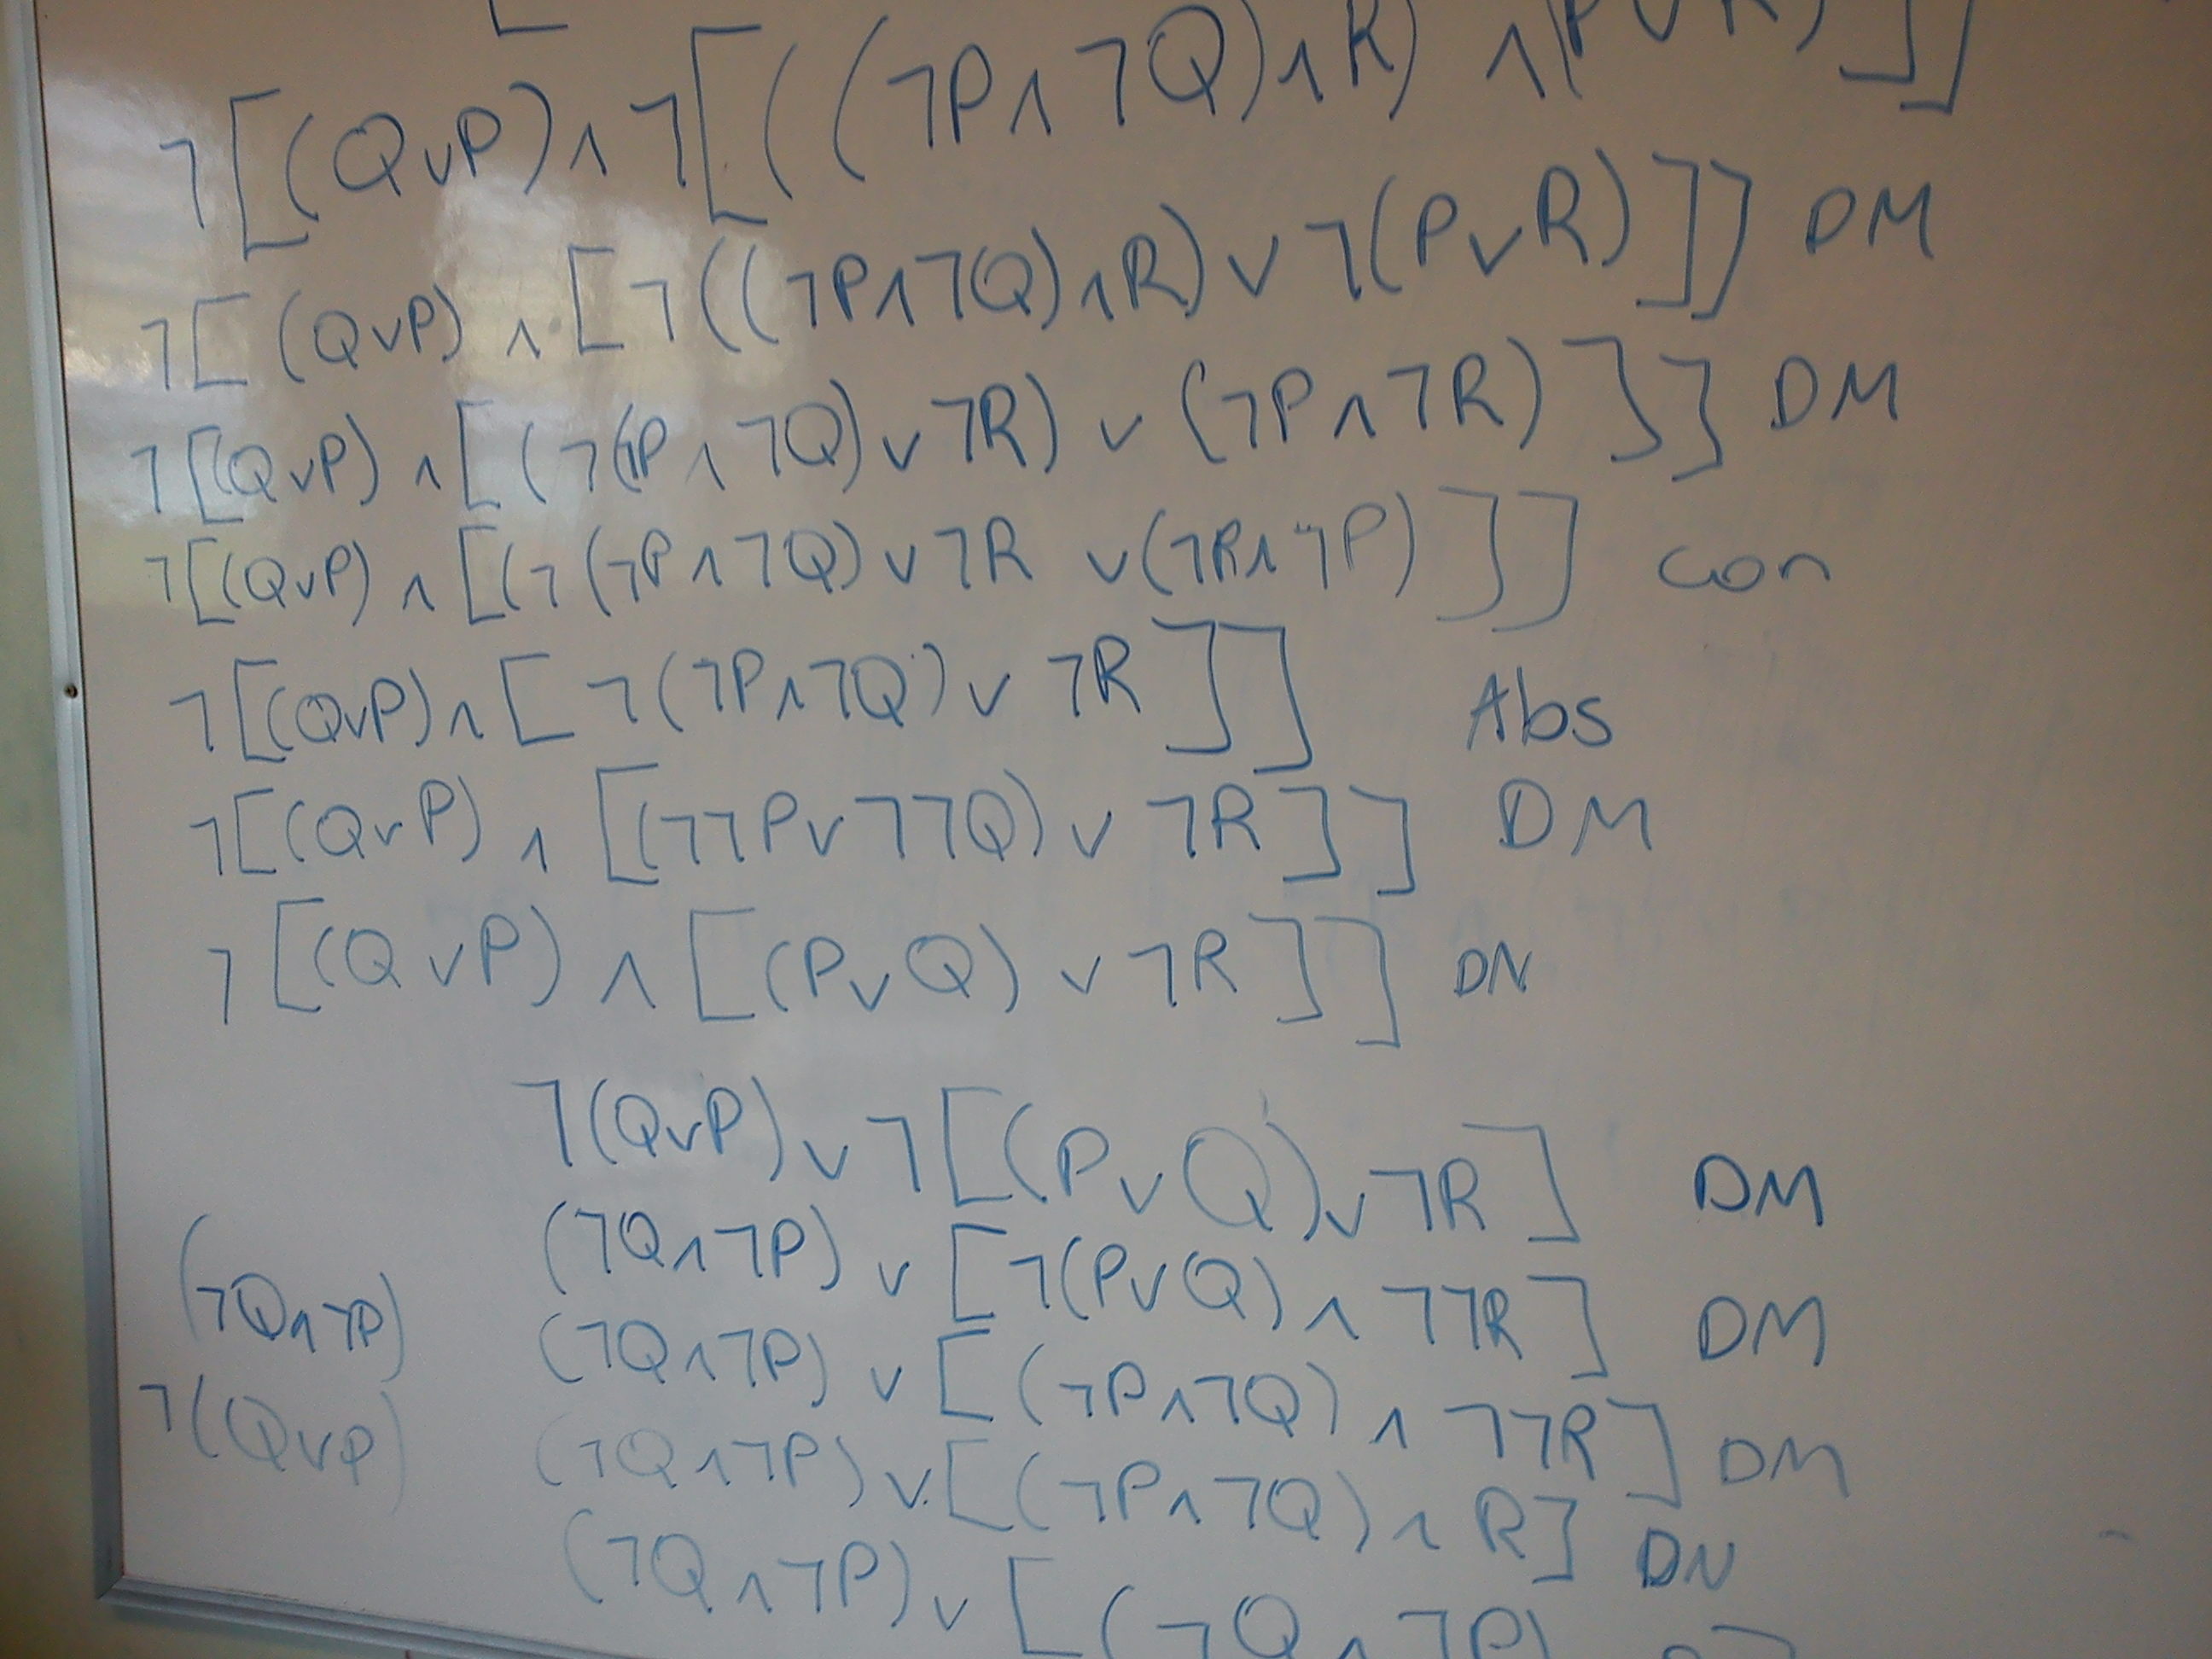 ¬[(Q∨P)∧¬[((¬P∧¬Q)∧R)∧(P∨R)]]
¬[(Q∨P)∧[¬((¬P∧¬Q)∧R)∨¬(P∨R)]] DM
¬[(Q∨P)∧[(¬(¬P∧¬Q)∨¬R)∨(¬P∧¬R)]] DM
¬[(Q∨P)∧[(¬(¬P∧¬Q)∨¬R ∨(¬R∧¬P)]] Con
¬[(Q∨P)∧[¬(¬P∧¬Q)∨¬R]] Abs
¬[(Q∨P)∧[(¬¬P∨¬¬Q)∨¬R]] DM
¬[(Q∨P)∧[(P∨Q)∨¬R]] DN
¬(Q∨P)∨¬[(P∨Q)∨¬R] DM
(¬Q∧¬P)∨[¬(P∨Q)∧¬¬R] DM
(¬Q∧¬P)
(¬Q∧¬P)∨[(¬P∧¬Q)∧¬¬R] DM
¬(Q∨P)
(¬Q∧¬P)∨[(¬P∧¬Q)∧R] DN
(¬Q∧¬P)∨[(¬Q∧¬P)